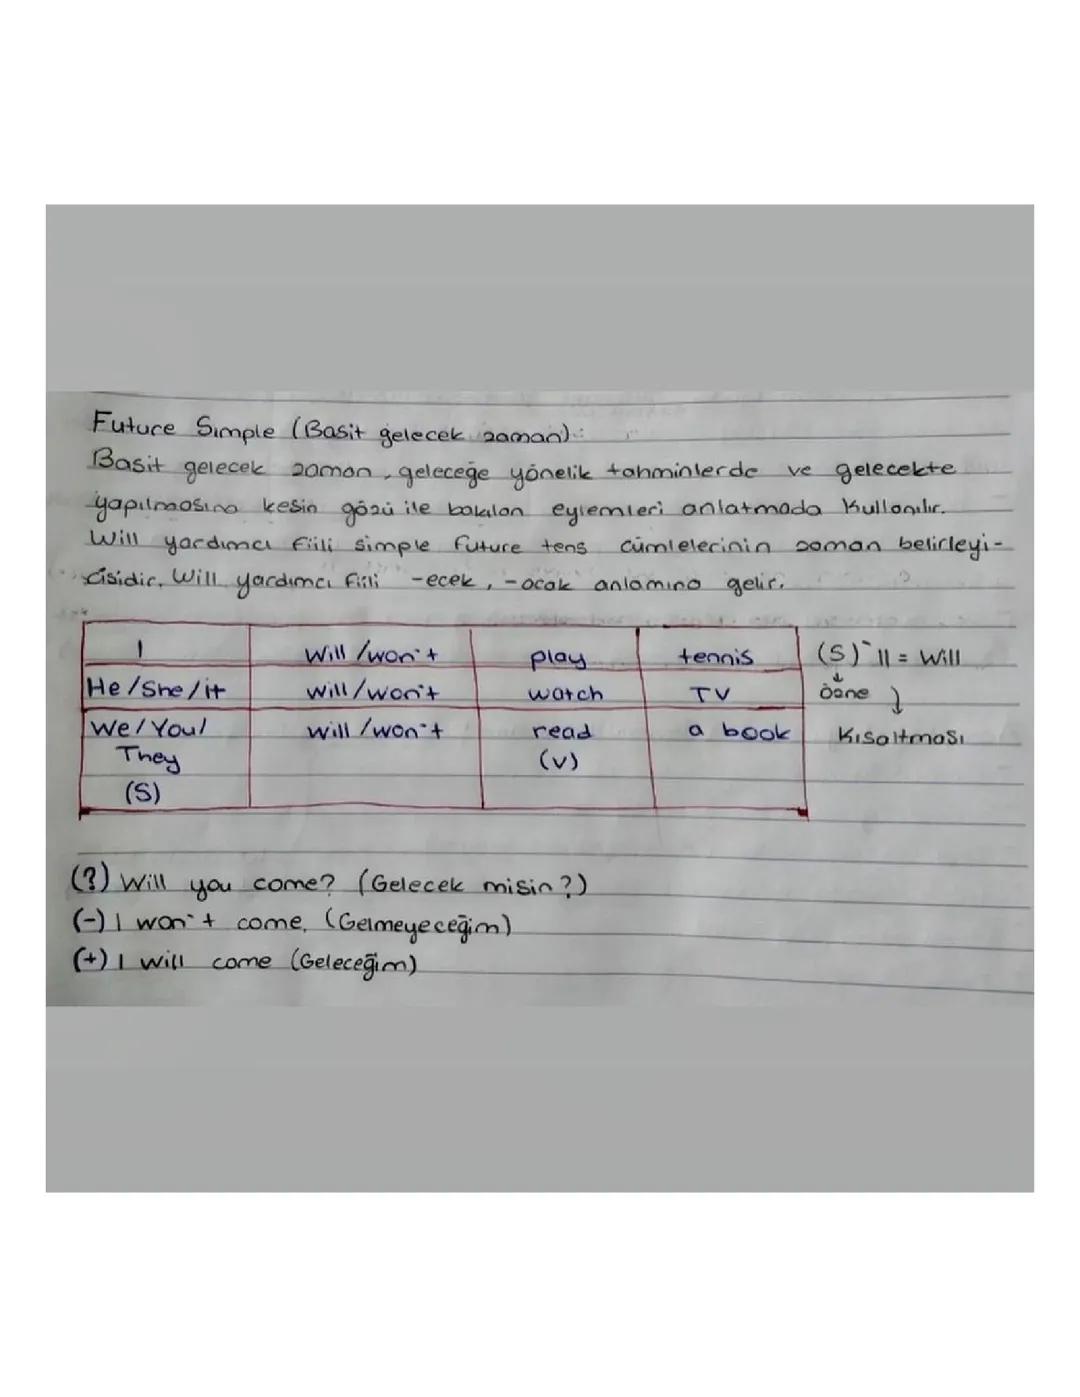 Future Simple (Basit gelecek zaman):
Basit gelecek zaman, geleceğe yönelik tahminlerde ve gelecekte
yapılmasına kesin gözü ile bakılan eylemleri anlatmada kullanılır.
Will yardımcı fiili simple future tens cümlelerinin zaman belirleyi-
cisidir. Will yardımcı fiili -ecek, -acak anlamına gelir.
I Will/won't play tennis (S)'ll = Will
He/She/it will/won't watch TV özne
We/You/ will/won't read a book Kısaltması
They (v)
(S)
(?) Will you come? (Gelecek misin?)
(-) I won't come. (Gelmeyeceğim)
(+) I will come (Geleceğim)